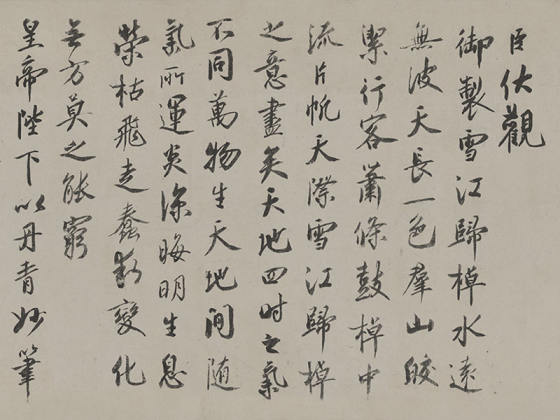 臣伏觀
御製雪江歸棹水遠
無波天長一色羣山皎
潔行客蕭條鼓棹中
流片帆天際雪江歸棹
之意盡矣天地四時之氣
不同萬物生天地間隨
氣所運炎涼晦明生息
榮枯飛走蠢動變化
無方莫之能窮
皇帝陛下以丹青妙筆